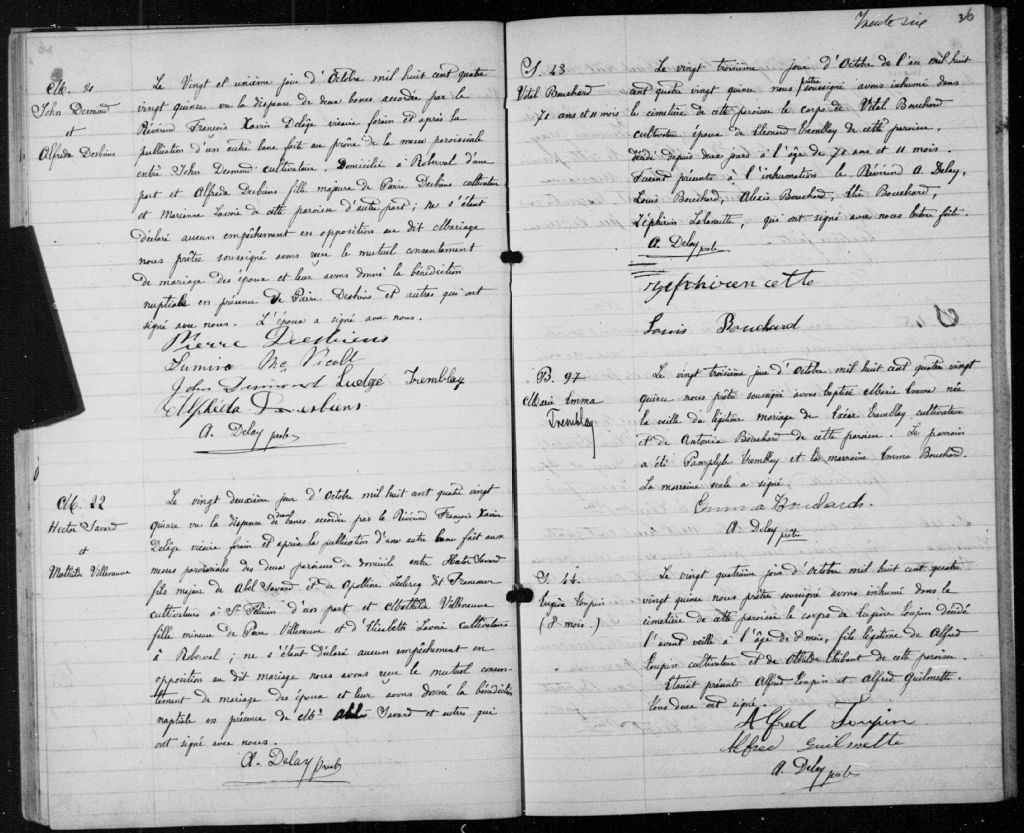 M. 21
John Desmond
et
Alfreda Desbiens
Le Vingt et unième jour d'Octobre mil huit cent quatre
vingt quinze vu la dispense de deux bancs accordée par le
Révérend François Xavier Delâge vicaire forain et après la
publication d'un autre banc fait au prône de la messe paroissiale
entre John Desmond cultivateur, domicilié à Roberval d'une
part et Alfreda Desbiens fille majeure de Pierre Desbiens cultivateur
et Marianne Lavoie de cette paroisse d'autre part; ne s'étant
déclaré aucun empêchement en opposition au dit Mariage
nous prêtre soussigné avons reçu le mutuel consentement
de mariage des époux et leur avons donné la bénédiction
nuptiale en présence de Pierre Desbiens et autres qui ont
signé avec nous. L'époux a signé avec nous.
Pierre Desbiens
Mc Nicoll
John Desmond Ludgé Tremblay
Alphéda Desbiens
A. Delay ptre
M. 22
Hector Savard
et
Mathilde Villeneuve
Le vingt deuxième jour d'Octobre mil huit cent quatre vingt
quinze vu la dispense de deux bancs accordée par le Révérend François Xavier
Delâge vicaire forain et après la publication d'une autre banc fait aux
messes paroissiales des deux paroisses du domicile entre Hector Savard
fils majeur de Abel Savard et de Apolline Leclerc dit Francoeur
cultivateurs à St Félicien d'un part et Mathilda Villeneuve
fille mineure de Villeneuve et d'Elisabeth Lavoie cultivateurs
à Roberval; ne s'étant déclaré aucun empêchement en
opposition au dit mariage nous avons reçu le mutuel consen-
tement de mariage des époux et leur avons donné la bénédiction
naptiale en présence de Mr Abel Savard et autres qui
ont signé avec nous.
A. Delay ptre
Trente six 36
S. 43
Vital Bouchard
71 ans et 11 mois
Le vingt troisième jour d'Octobre de l'an mil huit
cent quatre vingt quinze nous prêtre soussigné avons inhumé dans
le cimetière de cette paroisse le corps de Vital Bouchard
cultivateur époux de Tremblay de cette paroisse,
décédé depuis deux jours à l'âge de 71 ans et 11 mois.
Furent présents à l'inhumation le Révérend A. Delay,
Louis Bouchard, Alexis Bouchard, Elie Bouchard,
Zéphirin, qui ont signé avec nous lecture faite.
A. Delay ptre
Louis Bouchard
B. 97
Marie Emma
Tremblay
Le vingt troisième jour d'Octobre mil huit cent quatre vingt
quinze nous prêtre soussigné avons baptisé Marie Emma née
la veille du légitime mariage de Tremblay cultivateur
et de Antonia Bouchard de cette paroisse. Le parrain
a été Pamphyle Tremblay et la marraine Emma Bouchard.
La marraine seule a signé.
Emma Bouchard.
A. Delay ptre
S. 44.
Eugène Toupin
(8 mois.)
Le vingt quatrième jour d'octobre mil huit cent quatre
vingt quinze nous prêtre soussigné avons inhumé dans le
cimetière de cette paroisse le corps de Eugène Toupin décédé
l'avant veille à l'âge de 8 mois, fils légitime de Alfred
Toupin cultivateur et de Thibaut de cette paroisse.
Etaient présents Alfred Toupin et Alfred Guilmette.
Tous deux ont signé.
Alfred Toupin
Alfred Guilmette
A. Delay ptre